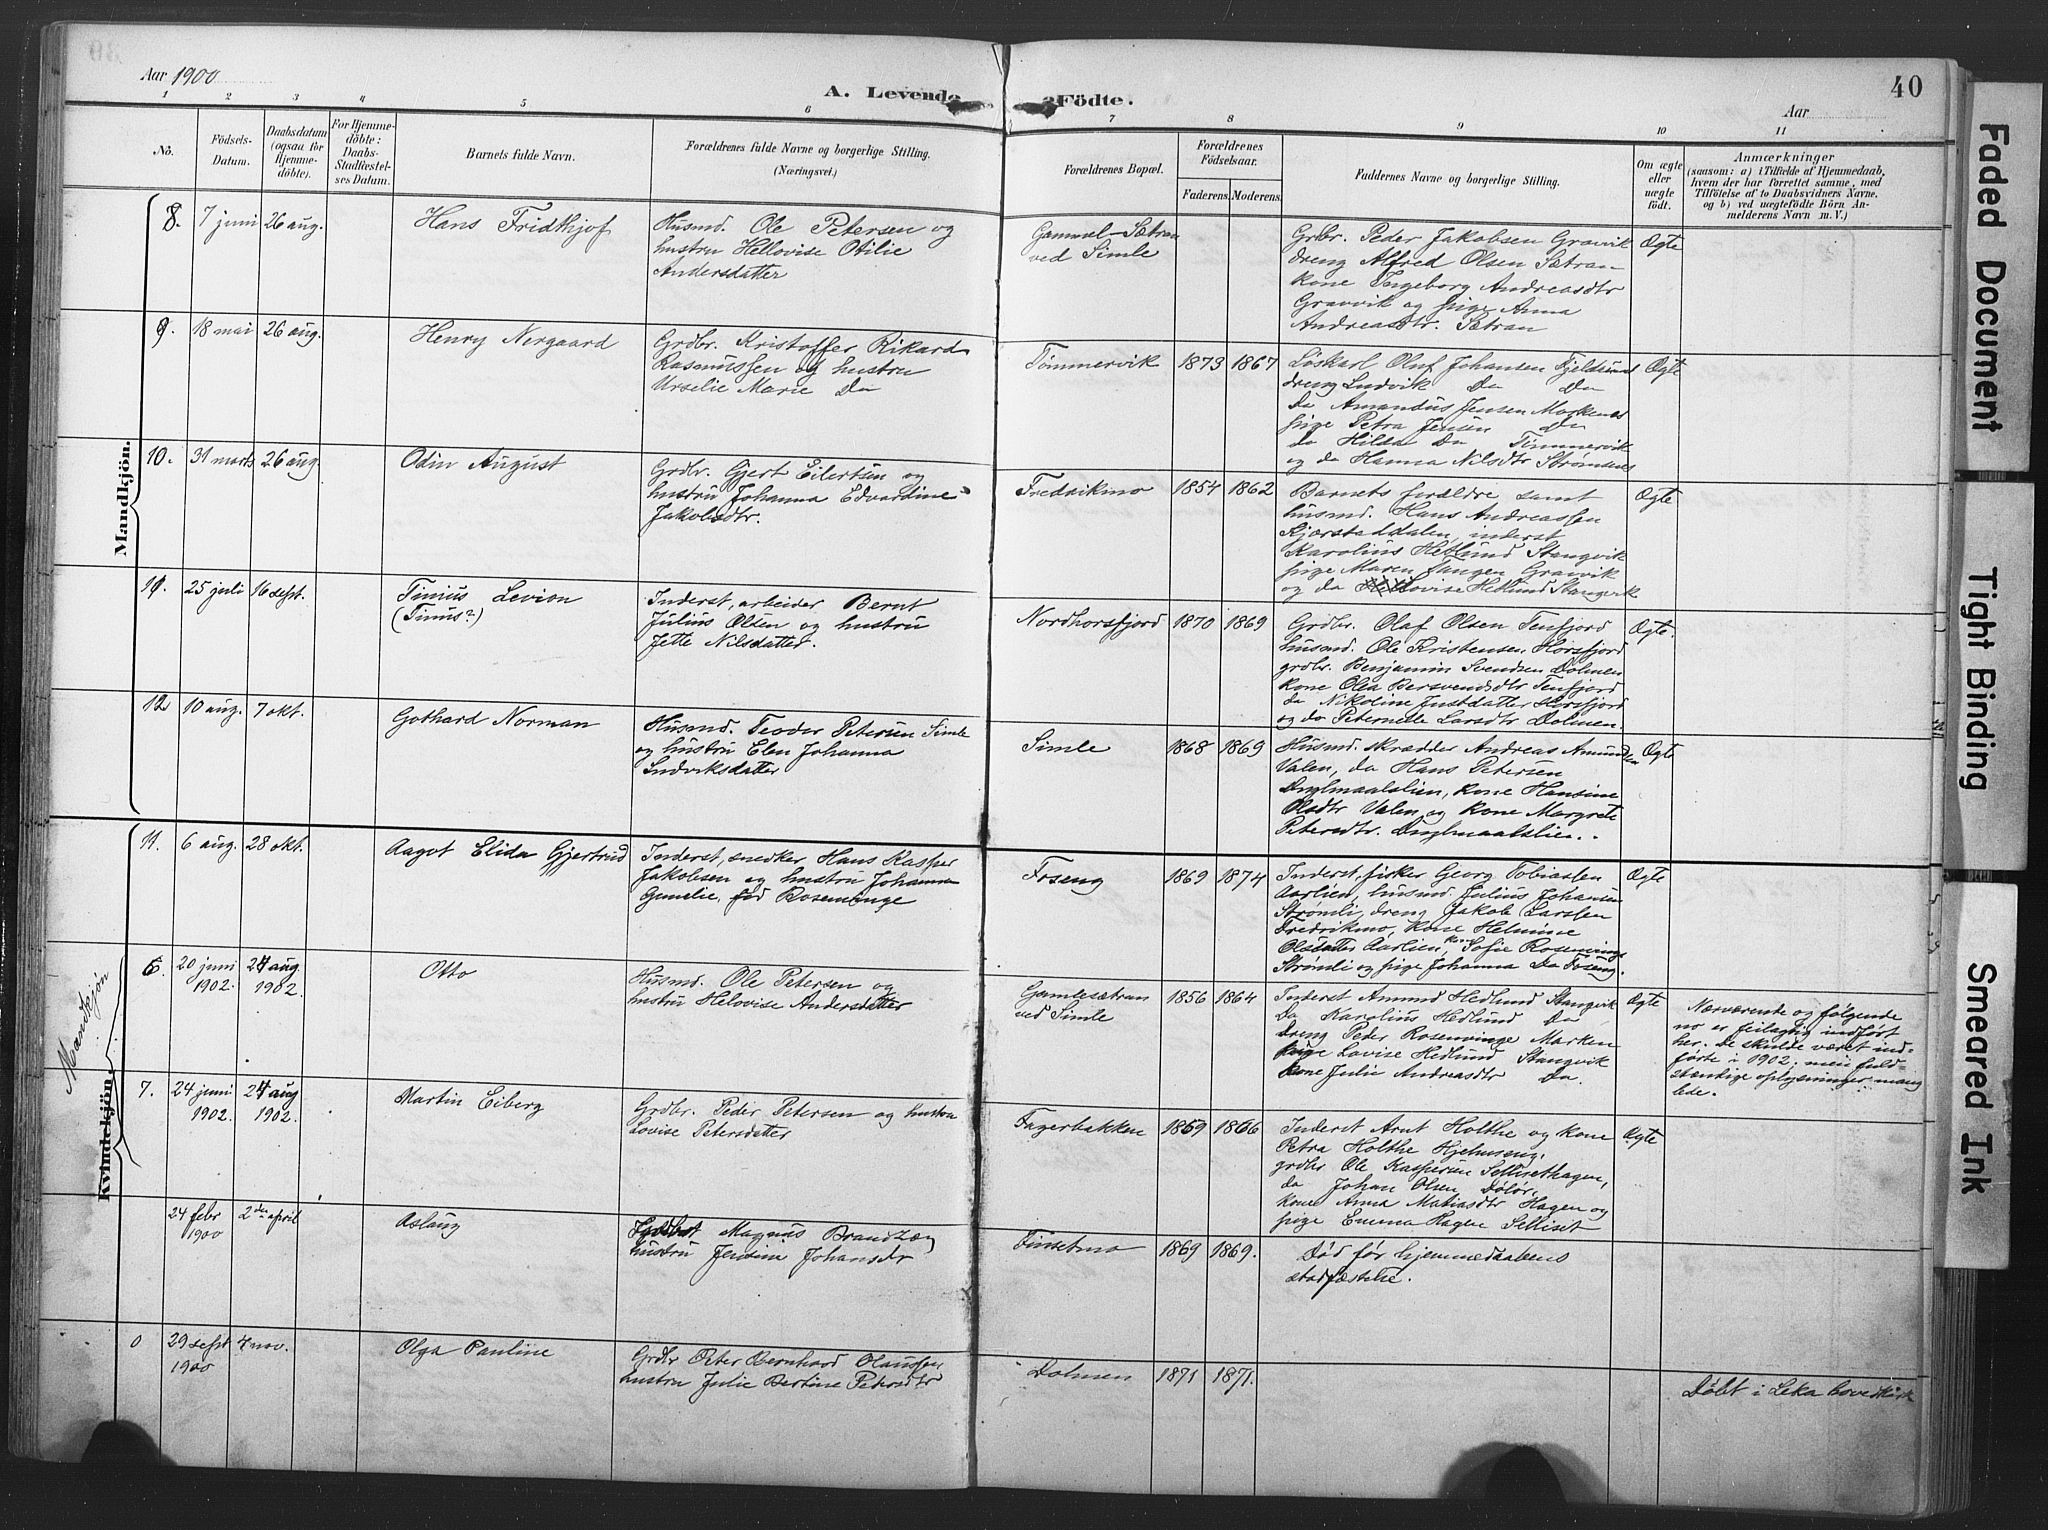 Aar 1900
A. Levende Födte.
Aar
40
1 2 3 4 5 6 7 8 9 10 11
No.
Födsels-
Datum.
Daabsdatum
(ogsaa for
Hjemme-
döbte).
For Hjemme-
döbte:
Daabs-
Stadfæstel-
ses Datum.
Barnets fulde Navn.
Forældrenes fulde Navne og borgerlige Stilling.
(Næringsvei.)
Forældrenes Bopæl.
Forældrenes
Födselsaar.
Faderens. Moderens.
Faddernes Navne og borgerlige Stilling.
Om ægte
eller
uægte
födt.
Anmærkninger
(saasom: a) i Tilfælde af Hjemmedaab,
hvem der har forrettet samme, med
Tilföielse af to Daabsvidners Navne.
og b) ved uægtefödte Börn An-
melderens Navn m. V.)
Mandkjön.
8. 7 juni 26 aug. Hans Fridthjof
Husmd. Ole Petersen og
hustru Hellovise Otilie
Andersdatter
Gammel-Sætran
ved Simle
Grbr. Peder Jakobsen Gravik
dreng Alfred Olsen Sætran
kone Ingeborg Andreasdtr
Gravvik og pige Anna
Andreasdtr. Sætran
Ægte
9. 18 mai 26 aug. Henry Nergaard
Grdbr. Kristoffer Rikard
Rasmussen og hustru
Urselie Marie Do
Tømmervik 1873 1867
Løskarl Oluf Johansen Fjeldsund
dreng Ludvik Do Do
Do Amandus Jensen Markenes
pige Petra Jensen Do
do Hilda Do Tømmervik
og do Hanna Nilsdtr Strømsnes
Ægte
10. 31 marts 26 aug. Odin August
Grdbr. Gjert Eilertsen og
hustru Johanna Edvardine
Jakobsdtr.
Fredrikmo 1854 1862
Barnets forældre samt
husmd. Hans Andreassen
Kjærstaddalen, inderst
Karolius Hetlund Stangvik
pige Maren Tangen Gravik
og do Lovise Hedlund Stangvik
Ægte
11. 25 juli 16 sept. Timius Levion
(Timus?)
Inderst, arbeider Bernt
Julius Olsen og hustru
Jette Nilsdatter.
Nordhorsfjord 1870 1869
Grdbr. Olaf Olsen Tenfjord
husmd. Ole Kristensen Horsfjord
grdbr. Benjamin Svendsen Dolmen
kone Olea Bersvendsdtr Tenfjord
do Nikoline Justdatter Horsfjord
og do Peternelle Larsdtr Dolmen.
Ægte.
12 10 aug. 7 okt. Gothard Norman
Husmd. Teodor Petersen Simle
og hustru Elen Johanna
Ludviksdatter
Simle 1868 1869
Husmd. skrædder Andreas Amundsen
Valen, do Hans Petersen
Dyglmaalslien, kone Hansine
Olsdtr Valen og kone Margrete
Petersdtr. Dyglmaalslien.
Ægte
Kvindekjön.
11. 6 aug. 28 okt. Aagot Elida Gjertrud
Inderst, snedker Hans Kasper
Jakobsen og hustru Johanna
Gunelie, fød Rosenvinge
Foseng 1869 1874
Inderst, fisker Georg Tobiassen
Aarlien, husmd. Julius Johansen
Strømli, dreng Jakob Larsen
Fredrikmo, kone Helmine
Olsdatter Aarlien, kone Sofie Rosenvinge
Strømli og pige Johanna Do Foseng.
Ægte
Mandkjøn
6. 20 juni
1902. 24 aug.
1902. Otto
Husmd. Ole Petersen og
hustru Helovise Andersdatter
Gamlesætran
ved Simle
1856 1864
Inderst Amund Hedlund Stangvik
Do Karolius Hedlund Do
Dreng Peder Rosenvinge Marken
pige Lovise Hedlund Stangvik
kone Julie Andreasdtr Do.
Ægte
Nærværende og følgende
no er feilagtig indført
her. De skulde været ind-
førte i 1902, men fuld-
stændige oplysninger mang
lede.
7. 24 juni
1902. 24 aug
1902. Martin Eiberg
Grdbr. Peder Petersen og hustru
Lovise Petersdatter
Fagerbakken 1869 1866
Inderst Arnt Holthe og kone
Petra Holthe Hjehuseng,
grdbr Ole Kaspersen Sellisethagen,
do Johan Olsen Dølør,
kone Anna Matiasdtr Hagen og
pige Emma Hagen Selliset
Ægte
24 febr
1900 2den april Aslaug
Magnus Brandzæg
hustru Jensine Johansdr
Finsetmo 1869 1869.
Død før hjemmedaabens
stadfæstelse.
0 29 sept
1900 4 nov. Olga Pauline
Grdbr Peter Bernhard Olaussen
hustru Julie Bertine Petersdtr
Dolmen 1871 1871.
Døbt i Leka hovedkirk
Faded Document
Tight Binding
Smeared Ink